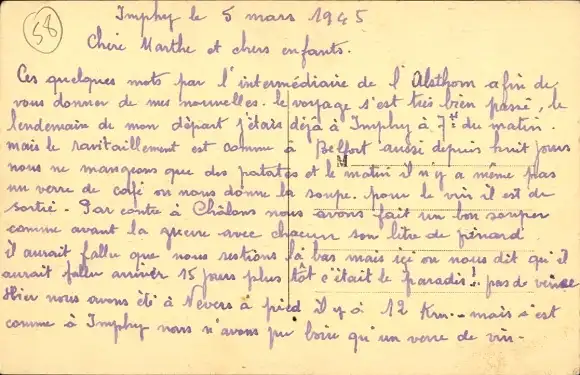 58
Imphy le 5 mars 1945
Chère Marthe et chers enfants.
Ces quelques mots par l'intermédiaire de l'Alsthom afin de
vous donner de mes nouvelles. le voyage s'est très bien passé, le
lendemain de mon départ j'étais déjà à Imphy à 7H du matin.
mais le ravitaillement est comme à Belfort aussi depuis huit jours
nous ne mangeons que des patates et le matin il n'y a même pas
un verre de café on nous donne la soupe. pour le vin il est de
sortie. Par contre à Châlons nous avons fait un bon souper
comme avant la guerre avec chacun son litre de pinard
il aurait fallu que nous restions là bas mais ici on nous dit qu'il
aurait fallu arriver 15 jours plus tôt c'était le paradis! pas de veine
Hier nous avons été à Nevers à pied il y a 12 Km.. mais c'est
comme à Imphy nous n'avons pu boire qu'un verre de vin.